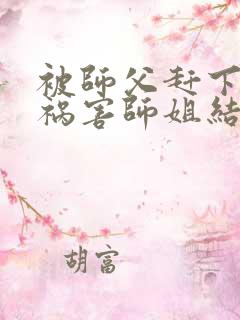 被師父赶下
祸害師姐結
胡富